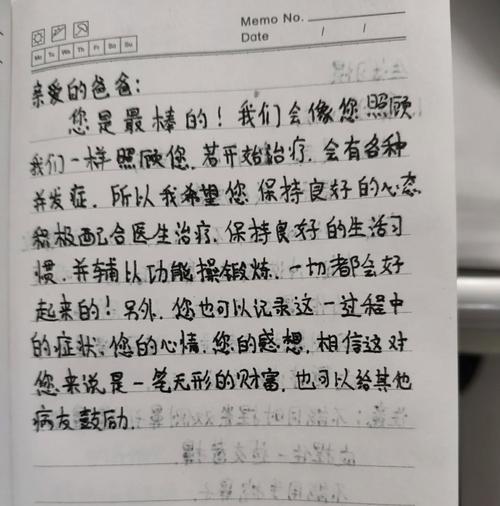 Memo No.
Mo Tu We Th Fr Sa Su
Date / /
亲爱的爸爸：
您是最棒的！我们会像您照顾
我们一样照顾您．若开始治疗．会有各种
并发症．所以我希望您保持良好的心态
积极配合医生治疗．保持良好的生活习
惯．并辅以功能操锻炼．一切都会好
起来的！另外．您也可以记录这一过程中
的症状．您的心情．您的感想．相信这对
您来说是一笔无形的财富．也可以给其他
病友鼓励．